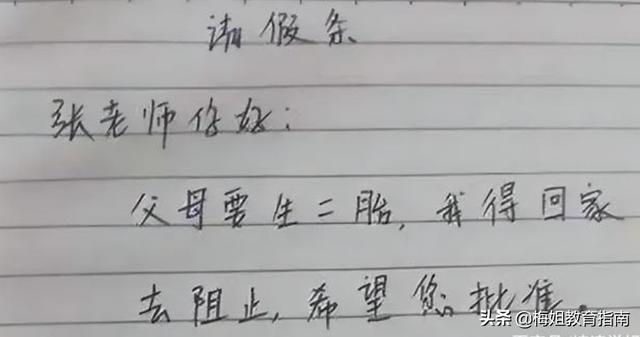 请假条
张老师你好：
父母要生二胎，我得回家
去阻止，希望您批准。
头条 @梅姐教育指南